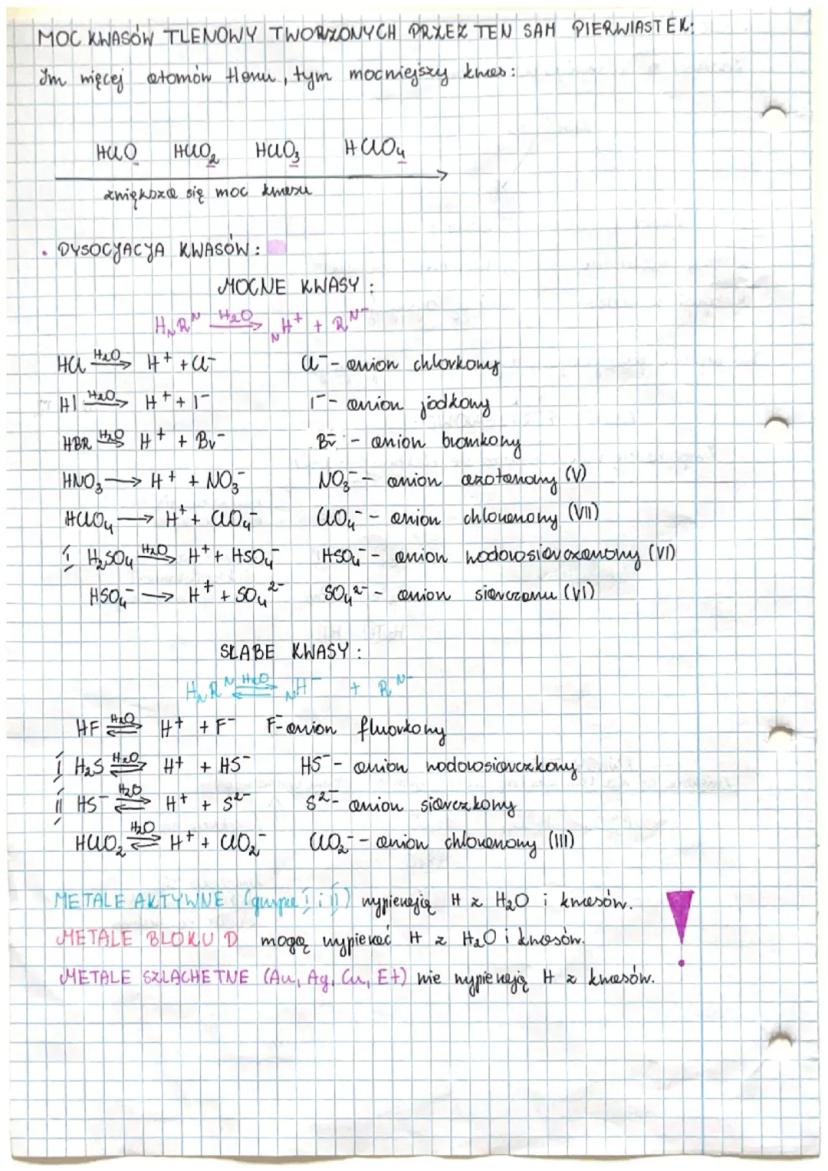 MOC KWASÓW TLENOWY TWORZONYCH PRZEZ TEN SAM PIERWIASTEK:
Im więcej atomów tlenu, tym mocniejszy kwas:
HClO HClO₂ HClO₃ HClO₄
zwiększa się moc kwasu
• DYSOCJACJA KWASÓW:
MOCNE KWASY:
HₙRᴺ H₂O→ ₙH⁺ + Rᴺ⁻
HCl H₂O→ H⁺ + Cl⁻ Cl⁻ - anion chlorkowy
HI H₂O→ H⁺ + I⁻ I⁻ - anion jodkowy
HBR H₂O→ H⁺ + Br⁻ Br⁻ - anion bromkowy
HNO₃ → H⁺ + NO₃⁻ NO₃⁻ - anion azotanowy (V)
HClO₄ → H⁺ + ClO₄⁻ ClO₄⁻ - anion chloranowy (VII)
I H₂SO₄ H₂O→ H⁺ + HSO₄⁻ HSO₄⁻ - anion wodorosiarczanowy (VI)
HSO₄⁻ → H⁺ + SO₄²⁻ SO₄²⁻ - anion siarczanu (VI)
SŁABE KWASY:
HₙRᴺ H₂O⇌ ₙH⁻ + Rᴺ⁻
HF H₂O⇌ H⁺ + F⁻ F⁻ anion fluorkowy
I H₂S H₂O⇌ H⁺ + HS⁻ HS⁻ - anion wodorosiarczkowy
II HS⁻ H₂O⇌ H⁺ + S²⁻ S²⁻ anion siarczkowy
HClO₂ H₂O⇌ H⁺ + ClO₂⁻ ClO₂⁻ - anion chloranowy (III)
METALE AKTYWNE (grupa I i II) wypierają H z H₂O i kwasów.
METALE BLOKU D mogą wypierać H z H₂O i kwasów.
METALE SZLACHETNE (Au, Ag, Cu, Et) nie wypierają H z kwasów.
!